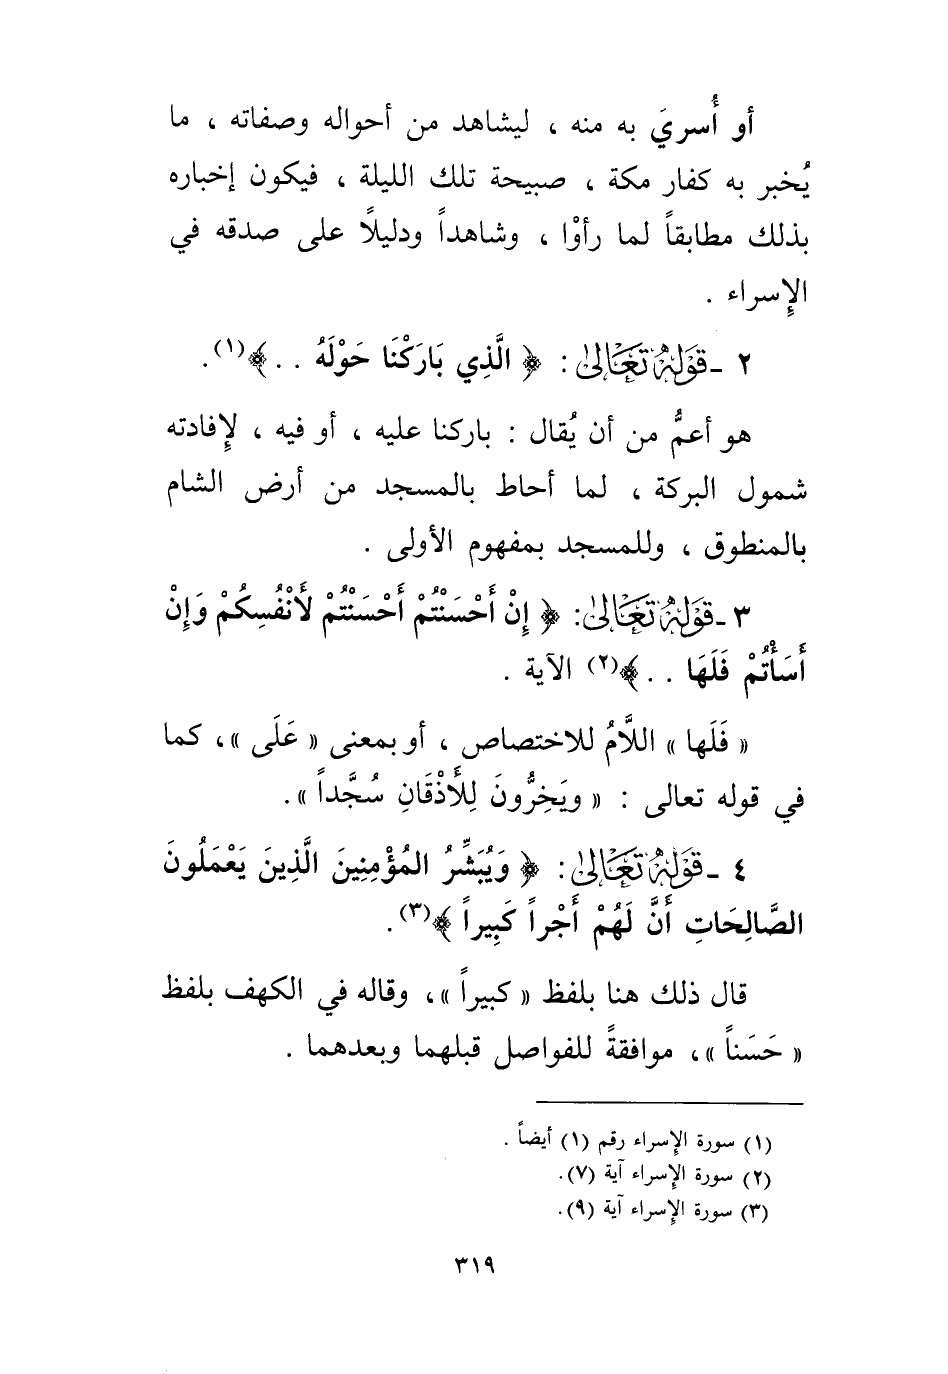 أو أُسريَ به منه ، ليشاهد من أحواله وصفاته ، ما
يُخبر به كفار مكة ، صبيحة تلك الليلة ، فيكون إخباره
بذلك مطابقاً لما رأوْا ، وشاهداً ودليلًا على صدقه في
الإسراء .
٢ ـ قَوْلُهُ تَعَالَىٰ : ﴿ الَّذِي بَارَكْنَا حَوْلَهُ . . ﴾(١).
هو أعمُّ من أن يُقال : باركنا عليه ، أو فيه ، لإِفادته
شمول البركة ، لما أحاط بالمسجد من أرض الشام
بالمنطوق ، وللمسجد بمفهوم الأولى .
٣ ـ قَوْلُهُ تَعَالَىٰ : ﴿ إِنْ أَحْسَنْتُمْ أَحْسَنْتُمْ لَأَنْفُسِكُمْ وَإِنْ
أَسَأْتُمْ فَلَهَا . . ﴾(٢) الآية .
« فَلَها » اللَّامُ للاختصاص ، أو بمعنى « عَلَى »، كما
في قوله تعالى : « ويَخِرُّونَ لِلْأَذْقَانِ سُجَّداً ».
٤ ـ قَوْلُهُ تَعَالَىٰ : ﴿ وَيُبَشِّرُ المُؤْمِنِينَ الَّذِينَ يَعْمَلُونَ
الصَّالِحَاتِ أَنَّ لَهُمْ أَجْراً كَبِيراً ﴾(٣).
قال ذلك هنا بلفظ « كبيراً »، وقاله في الكهف بلفظ
« حَسَناً »، موافقةً للفواصل قبلهما وبعدهما .
(١) سورة الإسراء رقم (١) أيضاً .
(٢) سورة الإسراء آية (٧).
(٣) سورة الإسراء آية (٩).
٣١٩